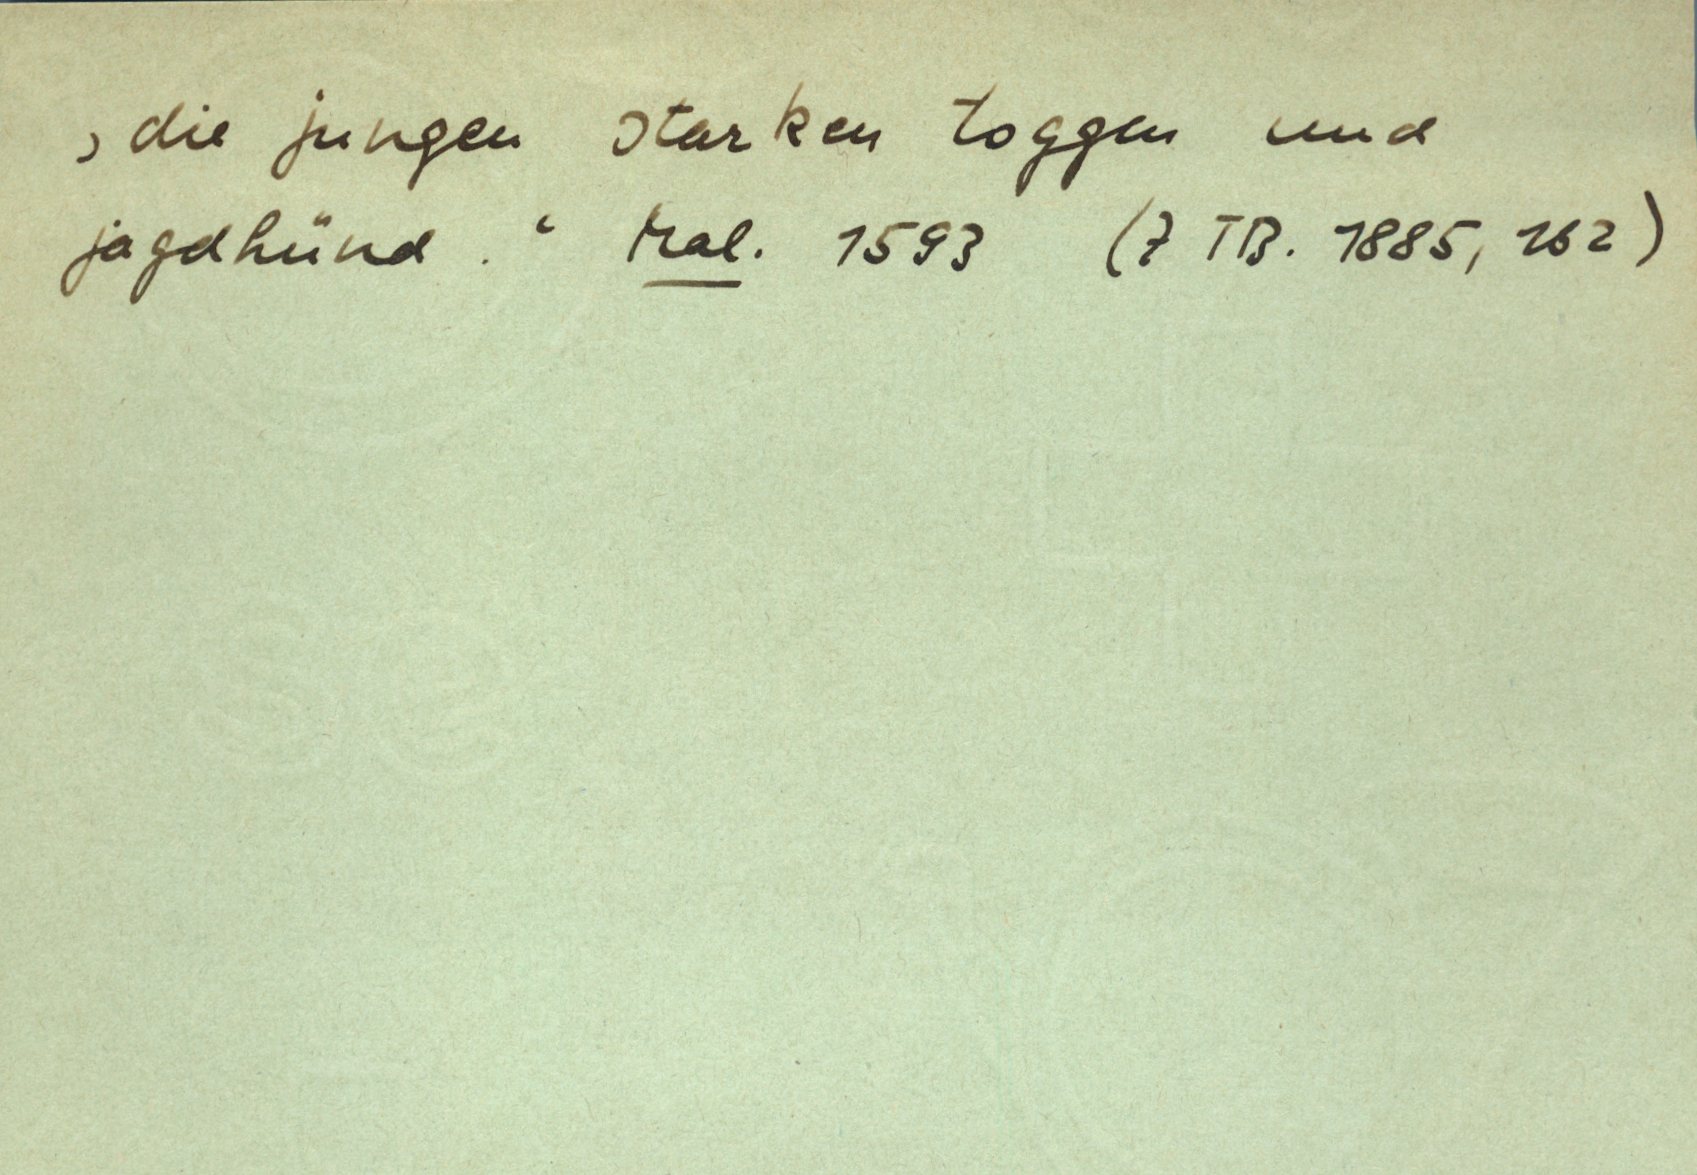 ‚die jungen starken toggen und
jagdhünd.‘ Mal. 1593 (Z TB. 1885, 162)